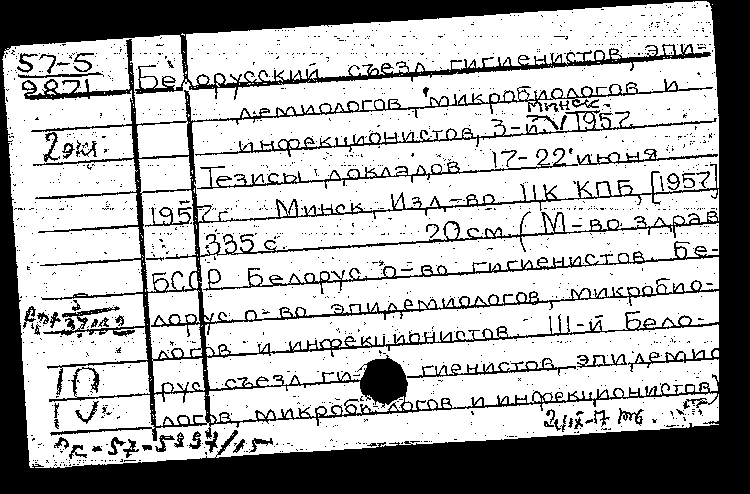 57-5
9871
Белорусский съезд гигиенистов, эпи-
демиологов, микробиологов и
инфекционистов, 3-й. Минск. 1957.
2 экз.
Тезисы докладов 17-22 июня
1957 г. Минск, Изд-во ЦК КПБ, [1957]
335 с. 20 см. (М-во здрав
БССР Белорус. о-во гигиенистов. Бе-
лорус о-во эпидемиологов, микробио-
логов и инфекционистов. III-й Бело-
рус съезд ги гиенистов, эпидемио
логов, микроби логов и инфекционистов)